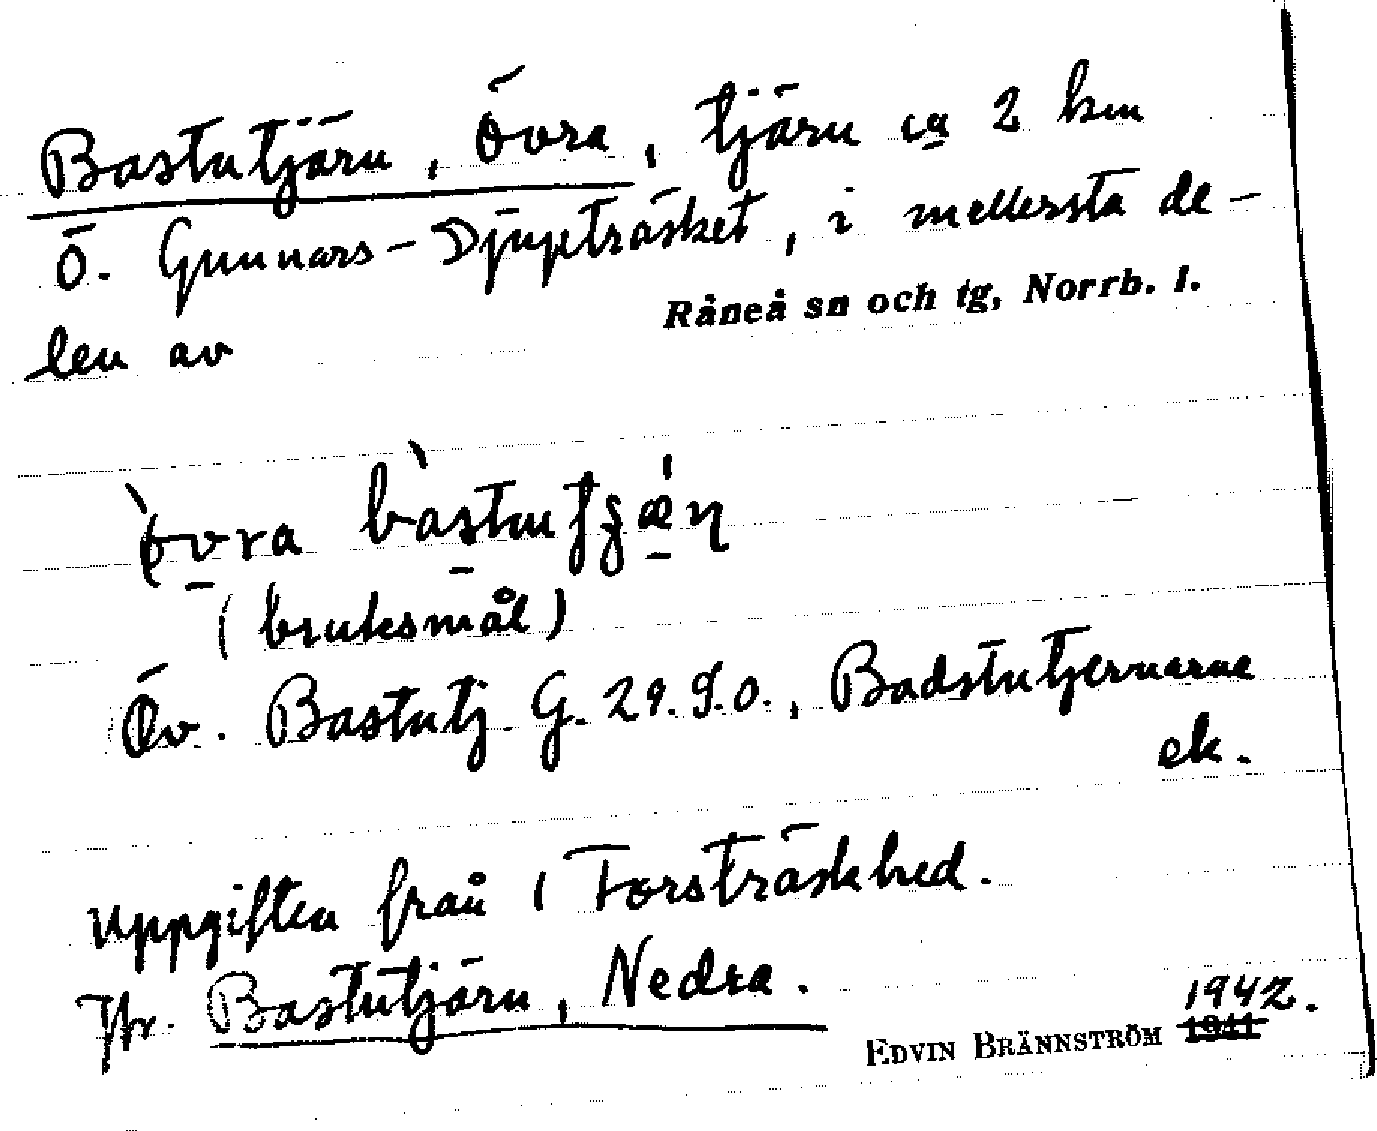 Bastutjärn, Övra, tjärn ca 2 km
Ö. Gunnars-Djupträsket, i mellersta de-
len av
Råneå sn och tg, Norrb. l.
(bruksmål)
Öv. Bastutj G. 29.9.0., Badstutjernarne
ek.
Uppgiften från 1 Forsträskhed.
Jfr. Bastutjärn, Nedra.
1942.
EDVIN BRÄNNSTRÖM 1941